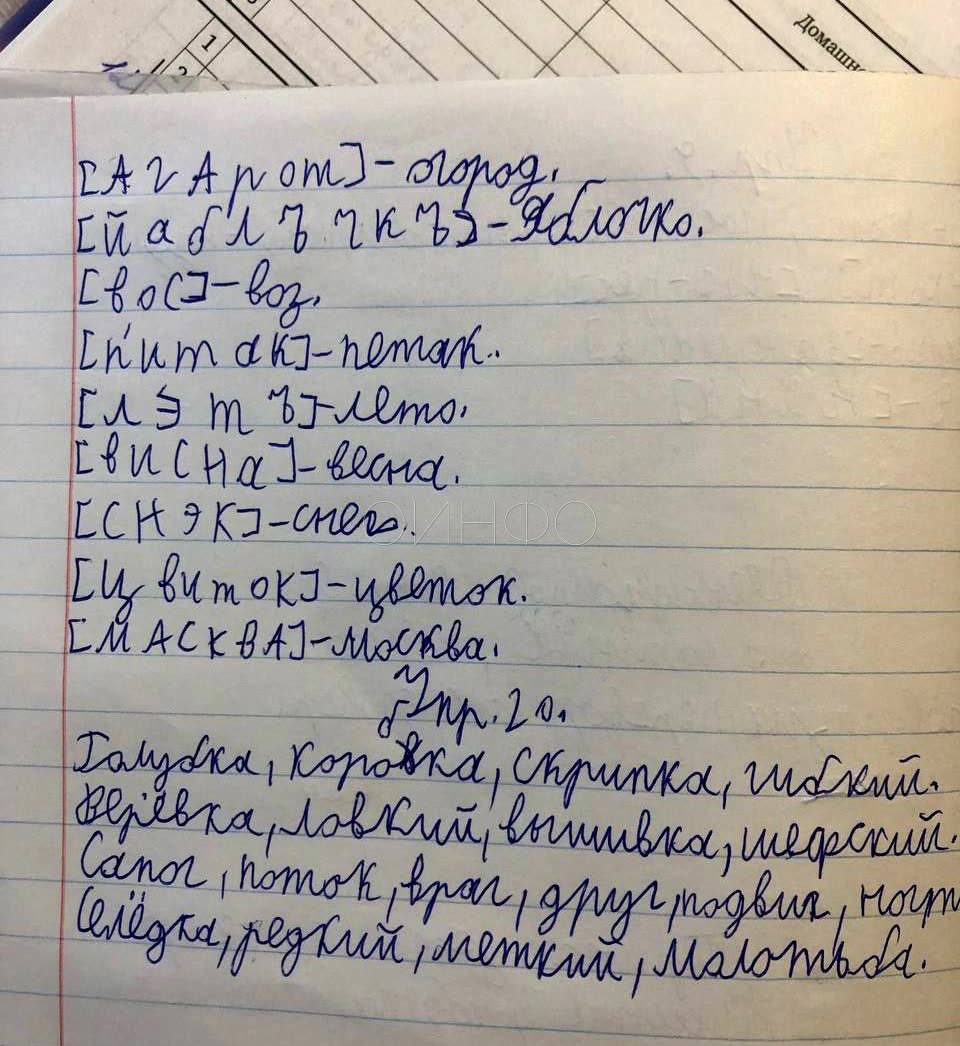 1
2
Домашн
[АгАрот]-огород.
[йаблъчкъ]-Яблочко.
[вос]-воз.
[п'итак]-петак.
[лэтъ]-лето.
[висна]-весна.
[снэк]-снег.
ФИНФО
[цвиток]-цветок.
[МАСКВА]-Москва.
Упр. 20.
Голубка, коровка, скрипка, гибкий.
Верёвка, ловкий, вышивка, шефский.
Сапог, поток, враг, друг, подвиг, ногт
Селёдка, редкий, меткий, молотьба.